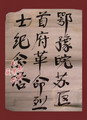 鄂豫皖苏区
首府革命烈
士纪念塔